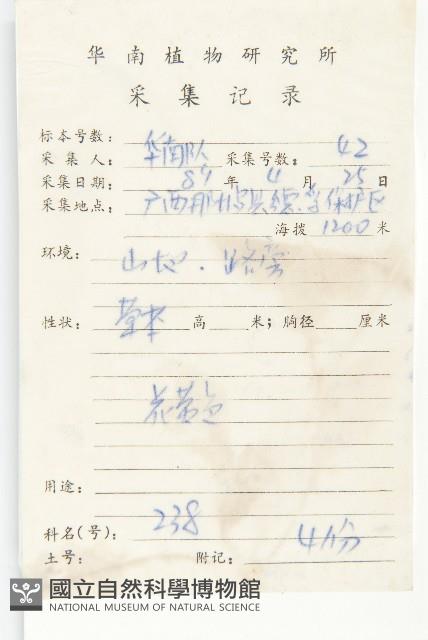 华南植物研究所
采集记录
标本号数：
采集人：华南队 采集号数：42
采集日期：89年4月25日
采集地点：广西那坡县德孚保护区
海拨 1200 米
环境：山地．路旁
性状：草本 高 米；胸径 厘米
花黄色
用途：
科名(号)：238
土号： 附记：4份
國立自然科學博物館
NATIONAL MUSEUM OF NATURAL SCIENCE